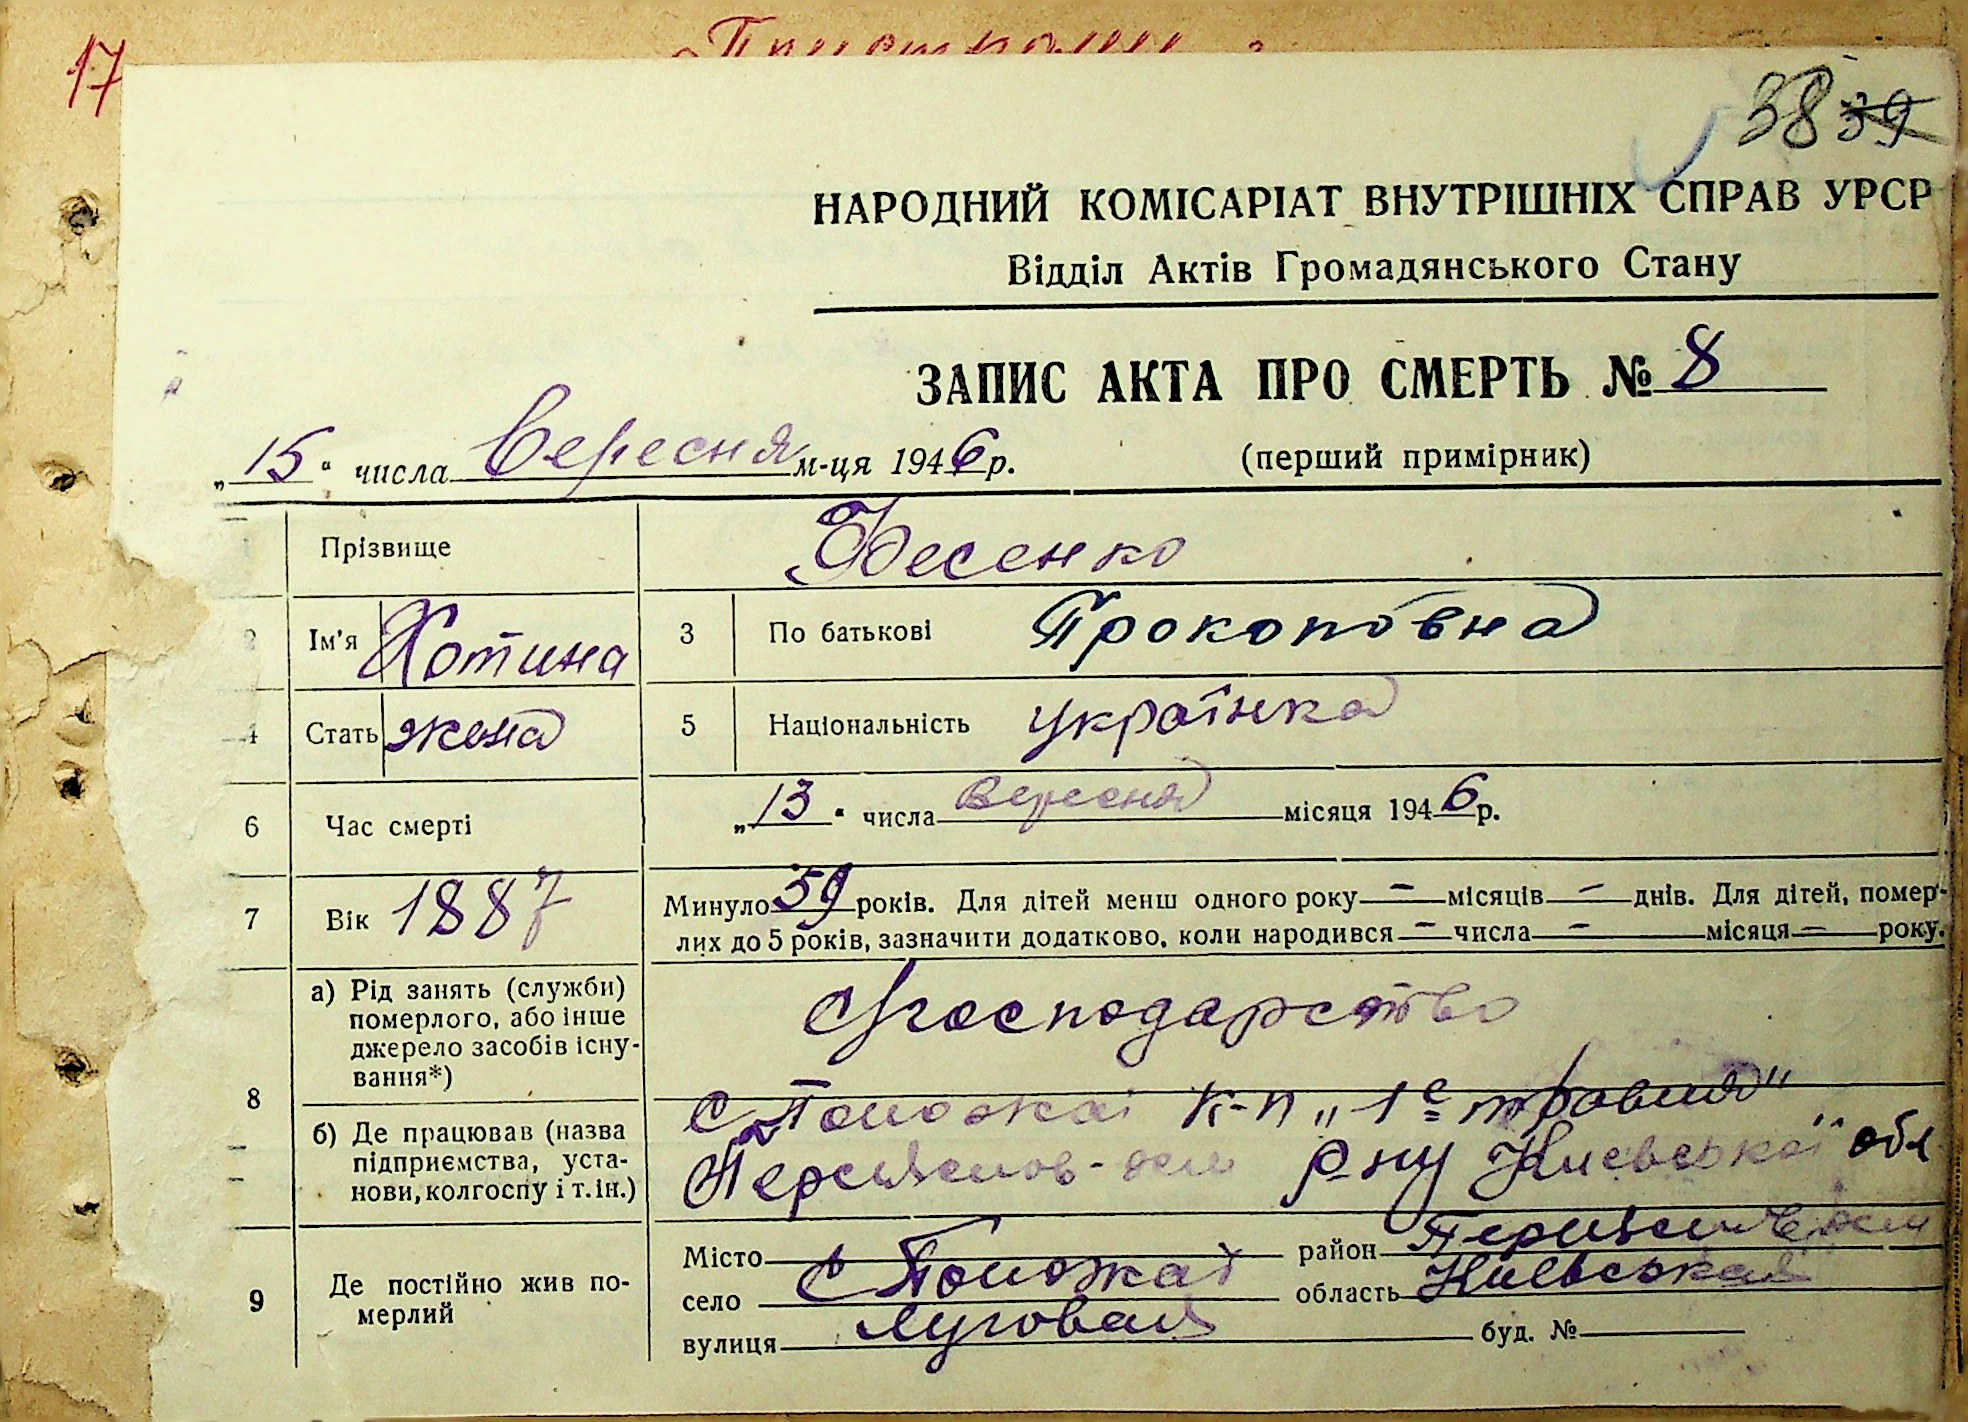 17
38 39
НАРОДНИЙ КОМІСАРІАТ ВНУТРІШНІХ СПРАВ УРСР
Відділ Актів Громадянського Стану
ЗАПИС АКТА ПРО СМЕРТЬ № 8
„15“ числа Вересня м-ця 1946 р. (перший примірник)
Прізвище
2 Ім'я Хотина 3 По батькові Прокоповна
4 Стать жена 5 Національність українка
6 Час смерті „13“ числа вересня місяця 1946 р.
7 Вік 1887 Минуло 59 років. Для дітей менш одного року — місяців — днів. Для дітей, помер-
лих до 5 років, зазначити додатково, коли народився — числа — місяця — року.
8 а) Рід занять (служби) померлого, або інше джерело засобів існу-вання*) с/господарство
б) Де працював (назва підприємства, уста-нови, колгоспу і т. ін.) с к-п „1е травня"
р-ну Київської обл
9 Де постійно жив по-мерлий
Місто район
село с область Київська
вулиця Луговая буд. №